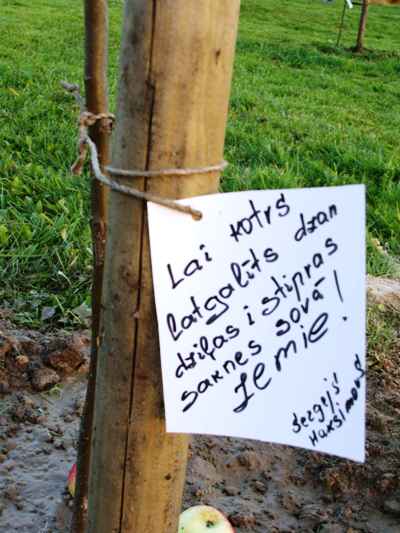 Lai kotrs
latgalīts dzan
dziļas i stipras
saknes sovā
zemie!
Sergejs
Maksimovs